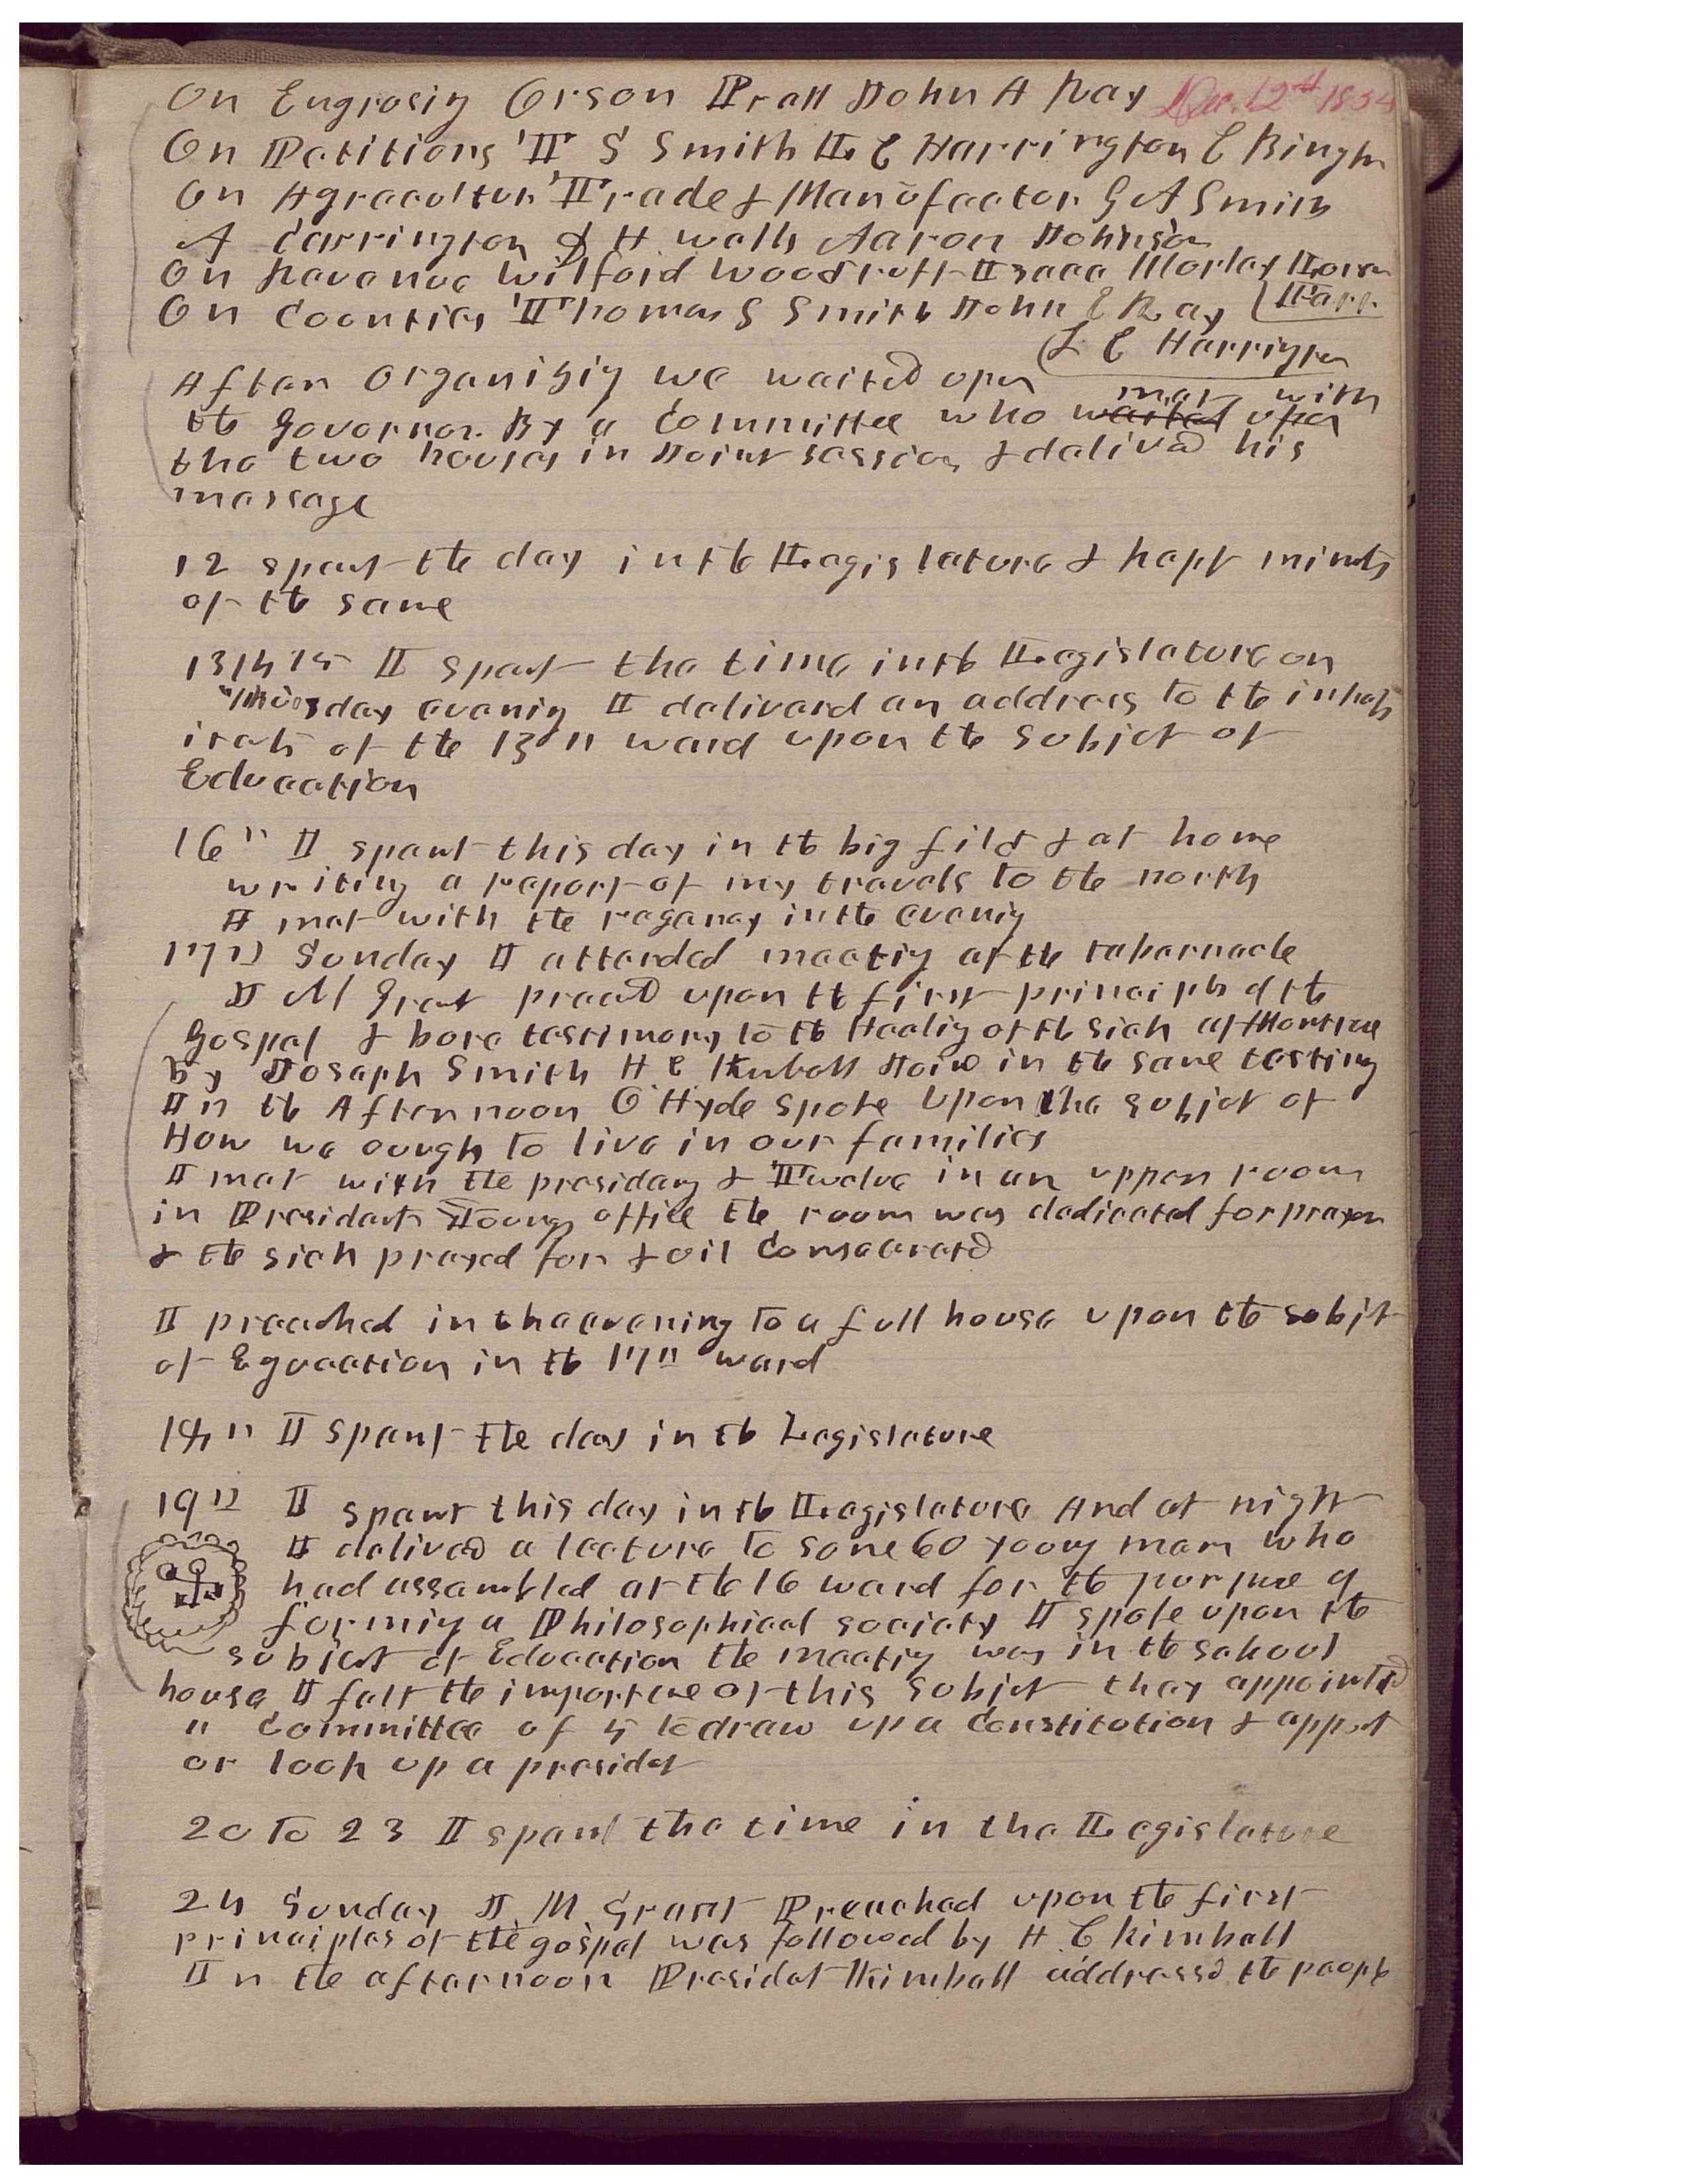 On Engrosing Orson Pratt John A Ray Dec. 12th 1854
On Petitions T S Smith L E Harrington E Bingh
On Agraculture Trade & Manufactor G A Smith
A Carrington D H Wells Aaron Johnson
On Revenue Wilford Woodruff Isaac Morley Lorin
On Counties Thomas S Smith John A Ray Farr
L E Harrington
After Organizing we waited upon
the Governor By a committee who waited upon met with
the two houses in Joint session & deliverd his
message
12 spent the day in the Legislature & kept minuts
of the same
13 14 15 I spent the time in the Legislature on
Thursday evening I deliverd an address to the inhab
itants of the 13" ward upon the subject of
Education
16" I spent this day in the big field & at home
writing a report of my travels to the north
I met with the regency in the evening
17" Sunday I attended meeting at the tabernacle
J M Grant preachd upon the first principls of the
Gospel & bore testimony to the Healing of the sick at Montrose
By Joseph Smith H C Kimball Joind in the same testimony
In the Afternoon O Hyde spoke upon the subject of
How we ought to live in our families
I met with the presidency & Twelve in an upper room
in President Youngs office the room was dedicated for prayer
& the sick prayed for & oil Consecrated
I preached in the evening to a full house upon the subjet
of Education in the 17" ward
18" I spent the day in the Legislature
19" I spent this day in the Legislature And at night
I deliverd a lecture to some 60 young men who
had assembled at the 16 ward for the purpose of
forming a Philosophical society I spoke upon the
subject of Education the meeting was in the school
house I felt the importance of this subject they appointed
a Committee of 5 to draw up a constitution & appoint
or look up a president
20 to 23 I spent the time in the Legislature
24 Sunday J M Grant Preached upon the first
principles of the gospel was followed by H C Kimball
In the afternoon President Kimball addressd the people